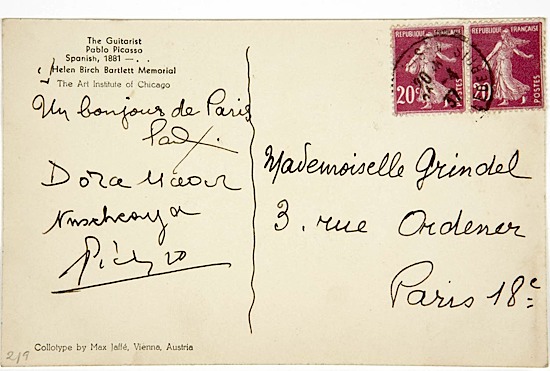 The Guitarist
Pablo Picasso
Spanish, 1881 – . .
Helen Birch Bartlett Memorial
The Art Institute of Chicago
Un bonjour de Paris
Paul.
Dora Maar
Nusch
Picasso
Collotype by Max Jaffé, Vienna, Austria
219
REPUBLIQUE FRANÇAISE
20c
POSTES
REPUBLIQUE FRANÇAISE
20
POSTES
Mademoiselle Grindel
3. rue Ordener
Paris 18e